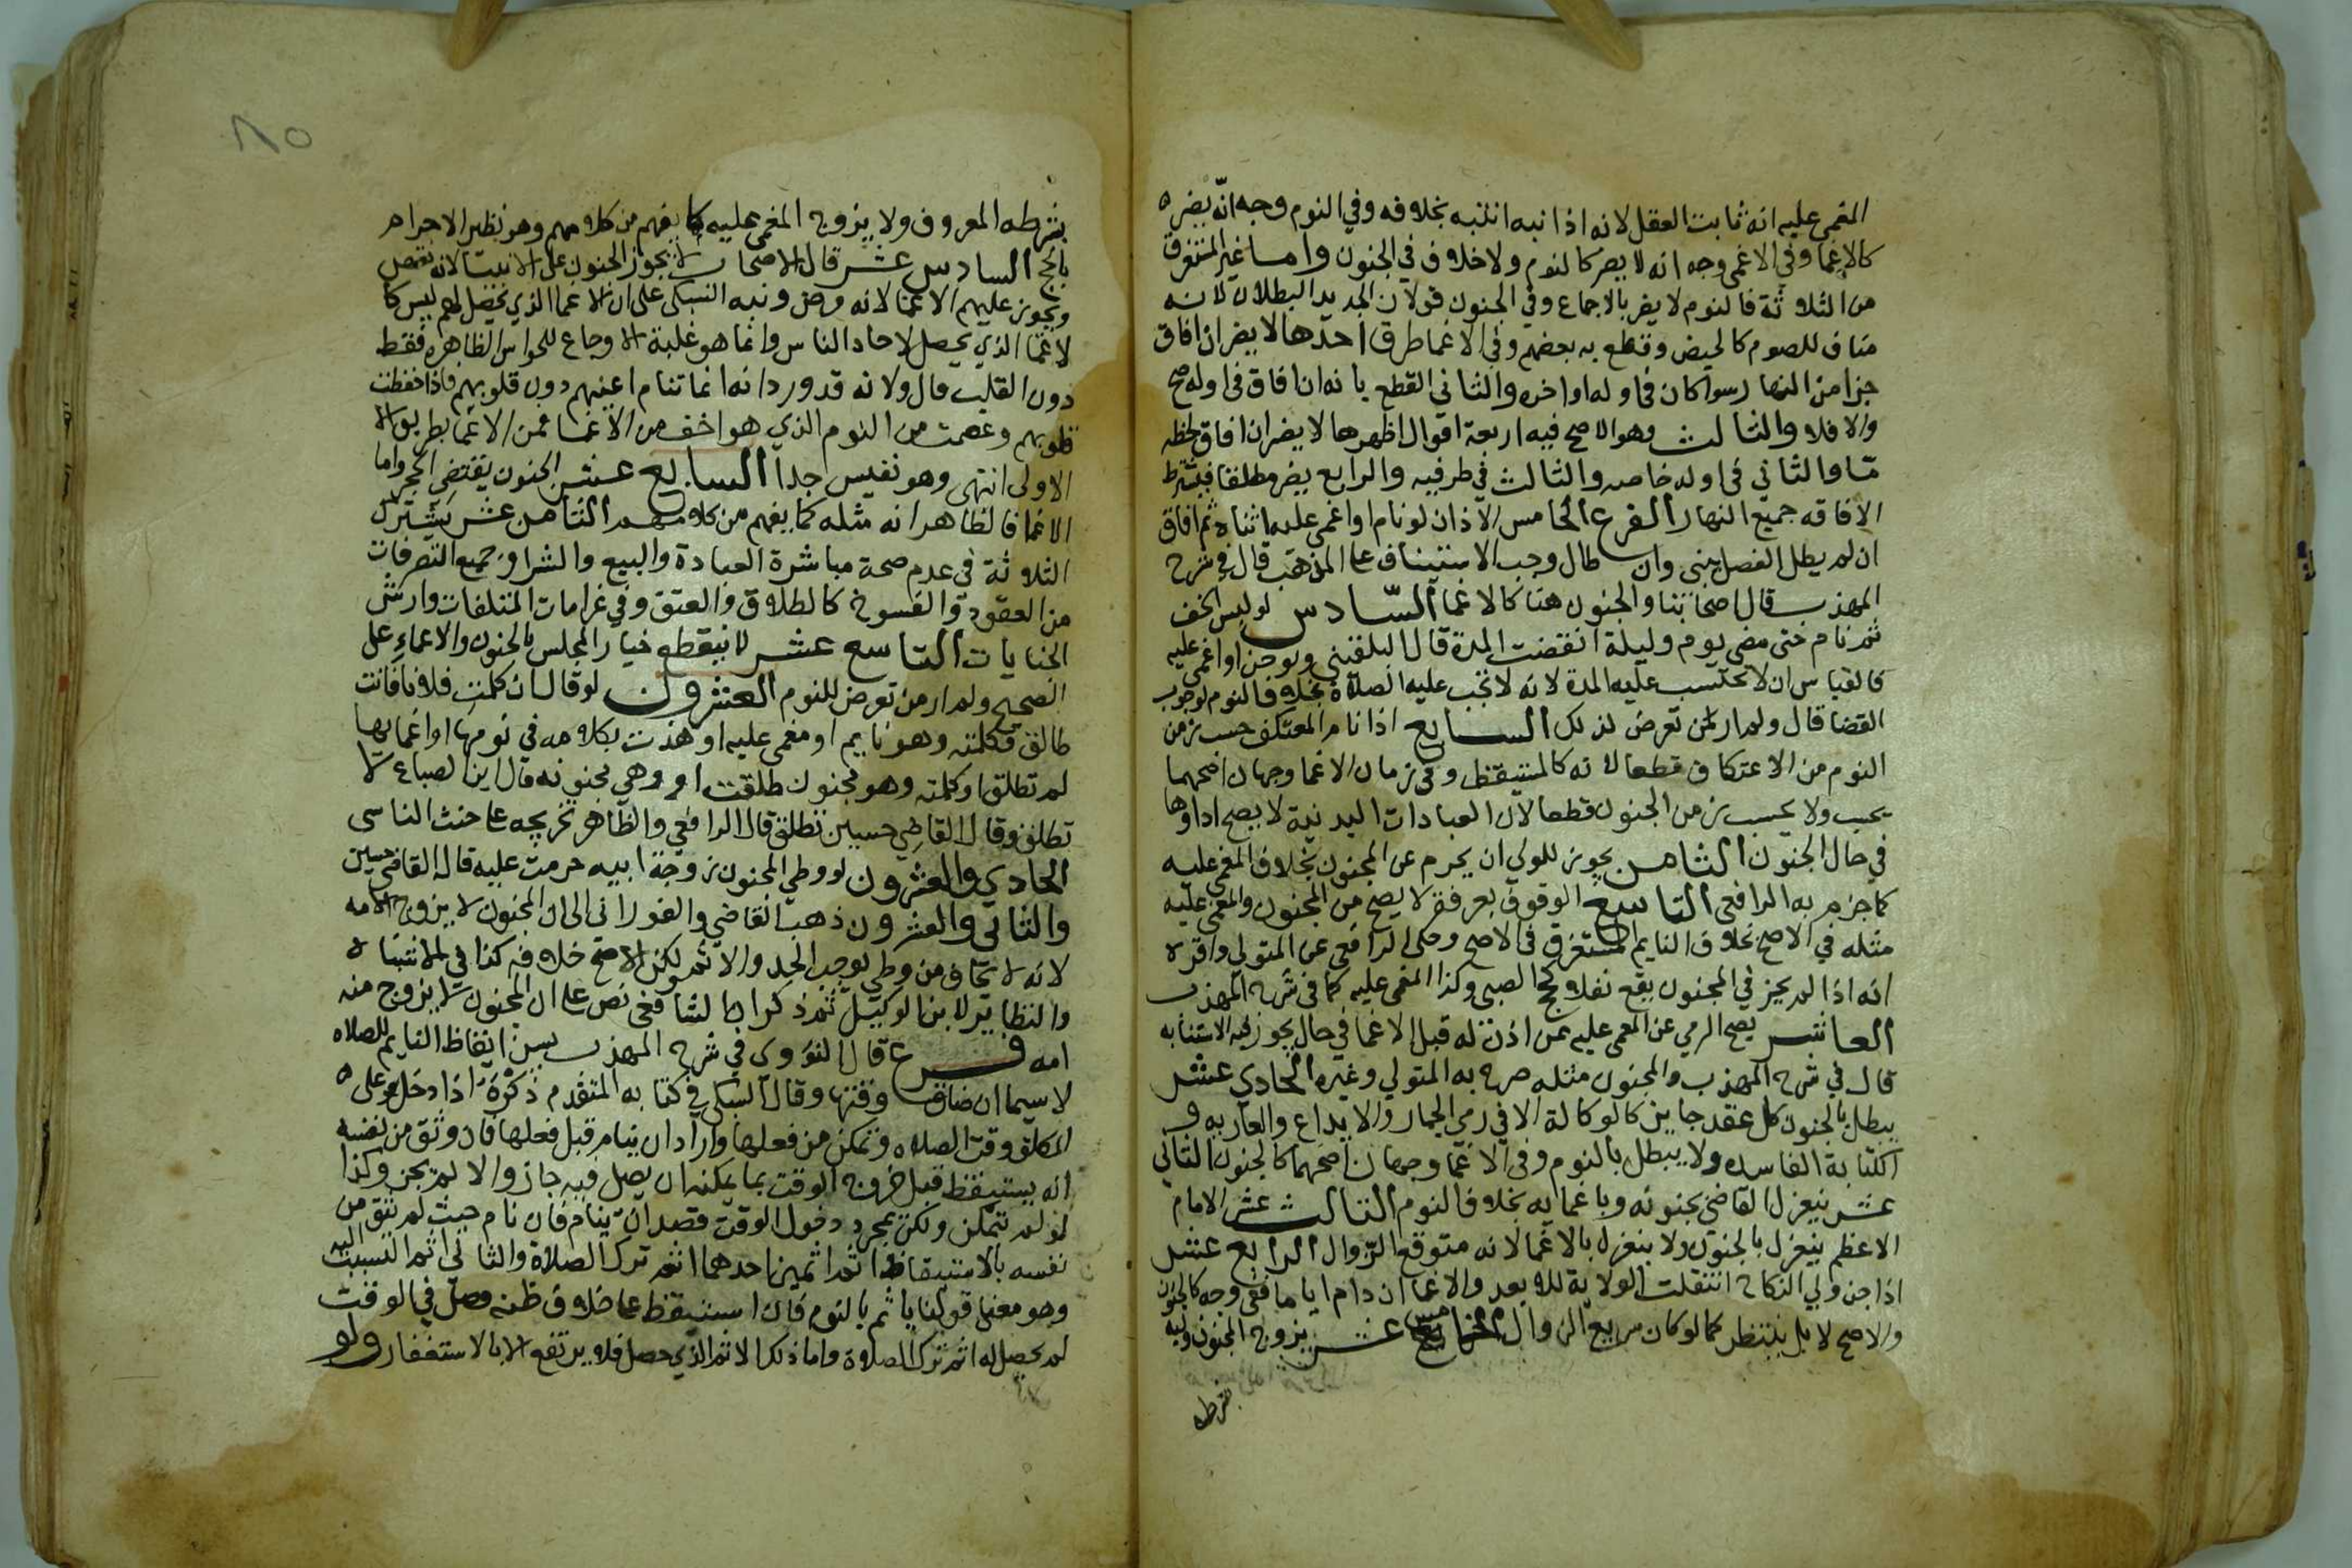 المغمى عليه انه ثابت العقل لانه اذا نبه انتبه بخلافه وفي النوم وجه انه يضره
كالاغما وفي الاغمى وجه انه لا يضر كالنوم ولا خلاف في الجنون واما غير المستغرق
من الثلاثة فالنوم لا يضر بالاجماع وفي الجنون قولان الجديد البطلان لانه
مناف للصوم كالحيض وقطع به بعضهم وفي الاغما طرق احدها لا يضر ان افاق
جزا من النهار سوا كان في اوله او اخره والثاني القطع بانه ان افاق في اوله صح
والا فلا والثالث وهو الاصح فيه اربعة اقوال اظهرها لا يضر ان افاق لحظه
ما والثاني في اوله خاصه والثالث في طرفيه والرابع يضر مطلقا فيشترط
الافاقه جميع النهار الفرع الخامس الاذان لو نام او اغمى عليه اثناه ثم افاق
ان لم يطل الفصل بنى وان طال وجب الاستيناف على المذهب قال في شرح
المهذب قال اصحابنا والجنون هنا كالاغما السادس لو لبس الخف
ثم نام حتى مضى يوم وليلة انقضت المدة قال البلقيني ولو جن او اغمى عليه
فالقياس ان لا تحتسب عليه المدة لانه لا تجب عليه الصلاة بخلاف النوم لوجوب
القضا قال ولم ار من تعرض لذلك السابع اذا نام المعتكف حسب زمن
النوم من الاعتكاف قطعا لانه كالمستيقظ وفي زمان الاغما وجهان اصحهما
يحسب ولا يحسب زمن الجنون قطعا لان العبادات البدنية لا يصح اداوها
في حال الجنون الثامن يجوز للولي ان يحرم عن المجنون بخلاف المغمى عليه
كما جزم به الرافعي التاسع الوقوف بعرفة لا يصح من المجنون والمغمى عليه
مثله في الاصح بخلاف النايم المستغرق في الاصح وحكى الرافعي عن المتولي واقره
انه اذا لم يجز في المجنون يقع نفلا كحج الصبي وكذا المغمى عليه كما في شرح المهذب
العاشر يصح الرمي عن المغمى عليه ممن اذن له قبل الاغما في حال يجوز فيه الاستنابه
قال في شرح المهذب والمجنون مثله صرح به المتولي وغيره الحادي عشر
يبطل بالجنون كل عقد جايز كالوكالة الا في رمي الجمار والايداع والعاريه و
الكتابة الفاسده ولا يبطل بالنوم وفي الاغما وجهان اصحهما كالجنون الثاني
عشر ينعزل القاضي بجنونه وباغمايه بخلاف النوم الثالث عشر الامام
الاعظم ينعزل بالجنون ولا ينعزل بالاغما لانه متوقع الزوال الرابع عشر
اذا جن ولي النكاح انتقلت الولاية للابعد والاغما ان دام اياما ففي وجه كالجنون
والاصح لا بل ينتظر كما لو كان سريع الزوال الخامس عشر يزوج المجنون وليه
بشرطه
بشرطه المعروف ولا يزوج المغمى عليه كما يفهم من كلامهم وهو نظير الاحرام
بالحج السادس عشر قال الاصحاب لا يجوز الجنون على الانبيا لانه نقص
ويجوز عليهم الاغما لانه مرض ونبه السبكي على ان الاغما الذي يحصل لهم ليس كا
لاغما الذي يحصل لاحاد الناس وانما هو غلبة الاوجاع للحواس الظاهره فقط
دون القلب قال ولانه قد ورد انه انما تنام اعينهم دون قلوبهم فاذا حفظت
قلوبهم وعصمت من النوم الذي هو اخف من الاغما فمن الاغما بطريق الا
الاولى انتهى وهو نفيس جدا السابع عشر الجنون يقتضي الحجر واما
الاغما فالظاهر انه مثله كما يفهم من كلامهم الثامن عشر يشترك
الثلاثة في عدم صحة مباشرة العبادة والبيع والشرا وجميع التصرفات
من العقود والفسوخ كالطلاق والعتق وفي غرامات المتلفات وارش
الجنايات التاسع عشر لا ينقطع خيار المجلس بالجنون والاغماء على
الصحيح ولم ار من تعرض للنوم العشرون لو قال ان كلمت فلانا فانت
طالق فكلمته وهو نايم او مغمى عليه او هذت بكلامه في نومها او اغمايها
لم تطلق او كلمته وهو مجنون طلقت او وهي مجنونه قال ابن الصباغ لا
تطلق وقال القاضي حسين تطلق قال الرافعي والظاهر تخريجه على حنث الناسي
الحادي والعشرون لو وطي المجنون زوجة ابيه حرمت عليه قال القاضي حسين
والثاني والعشرون ذهب القاضي والفوراني الى ان المجنون لا يزوج الامه
لانه لا يخاف من وطي يوجب الحد والاثم ولكن الاصح خلافه كذا في الاشباه
والنظاير لابن الوكيل ثم ذكر ان الشافعي نص على ان المجنون لا يزوج منه
امه فرع قال النووي في شرح المهذب يسن ايقاظ النايم للصلاه
لا سيما ان ضاق وقتها وقال السبكي في كتابه المتقدم ذكره اذا دخل على
المكلف وقت الصلاه وتمكن من فعلها واراد ان ينام قبل فعلها فان وثق من نفسه
انه يستيقظ قبل خروج الوقت بما يمكنه ان يصلي فيه جاز والا لم يجز وكذا
لو لم يتمكن ولكن بمجرد دخول الوقت قصد ان ينام فان نام حيث لم يثق من
نفسه بالاستيقاظ اثم اثمين احدهما اثم ترك الصلاة والثاني اثم التسبب اليه
وهو معنى قولنا ياثم بالنوم فان استيقظ على خلاف ظنه وصلى في الوقت
لم يحصل له اثم ترك الصلاة واما ذلك الاثم الذي حصل فلا يرتفع الا بالاستغفار ولو
٨٥